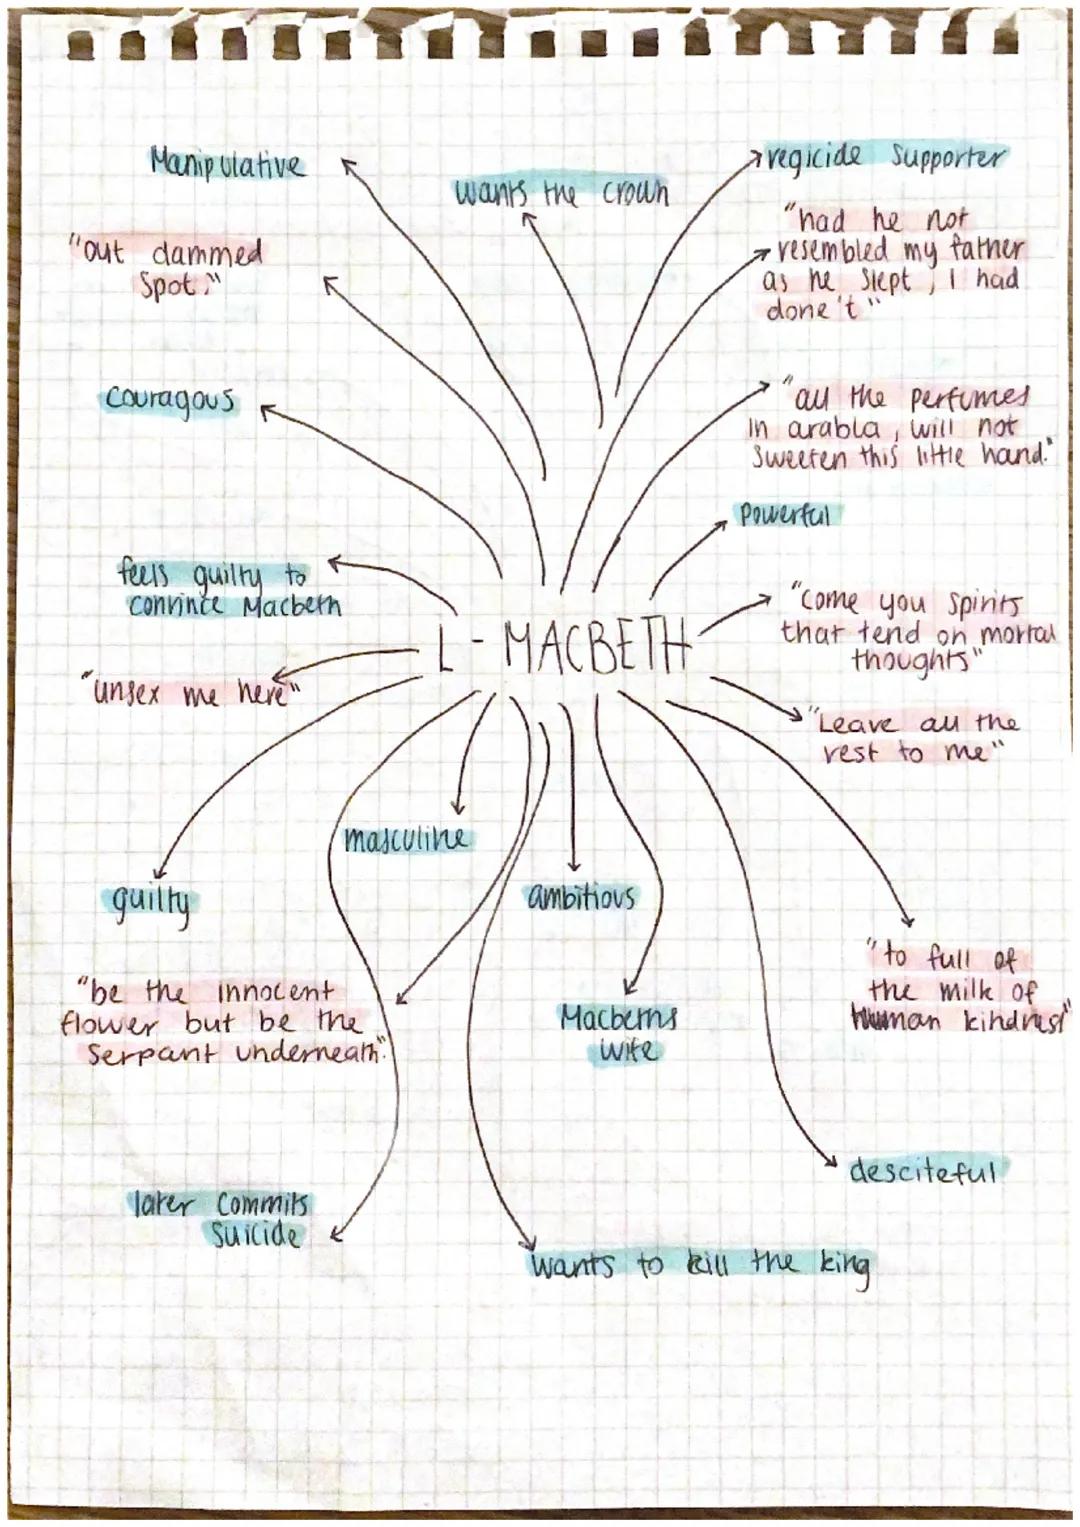 Manipulative
wants the crown
regicide supporter
"out dammed
spot."
"had he not
resembled my father
as he slept, I had
done't"
couragous
"all the perfumes
in arabla, will not
sweeten this little hand."
powerful
feels guilty to
convince Macbeth
"come you spirits
that tend on mortal
thoughts"
L - MACBETH
"unsex me here"
"Leave all the
rest to me"
masculine
guilty
ambitious
"to full of
the milk of
human kindness"
"be the innocent
flower but be the
serpant underneath."
Macbeths
wife
desciteful
later commits
suicide
wants to kill the king